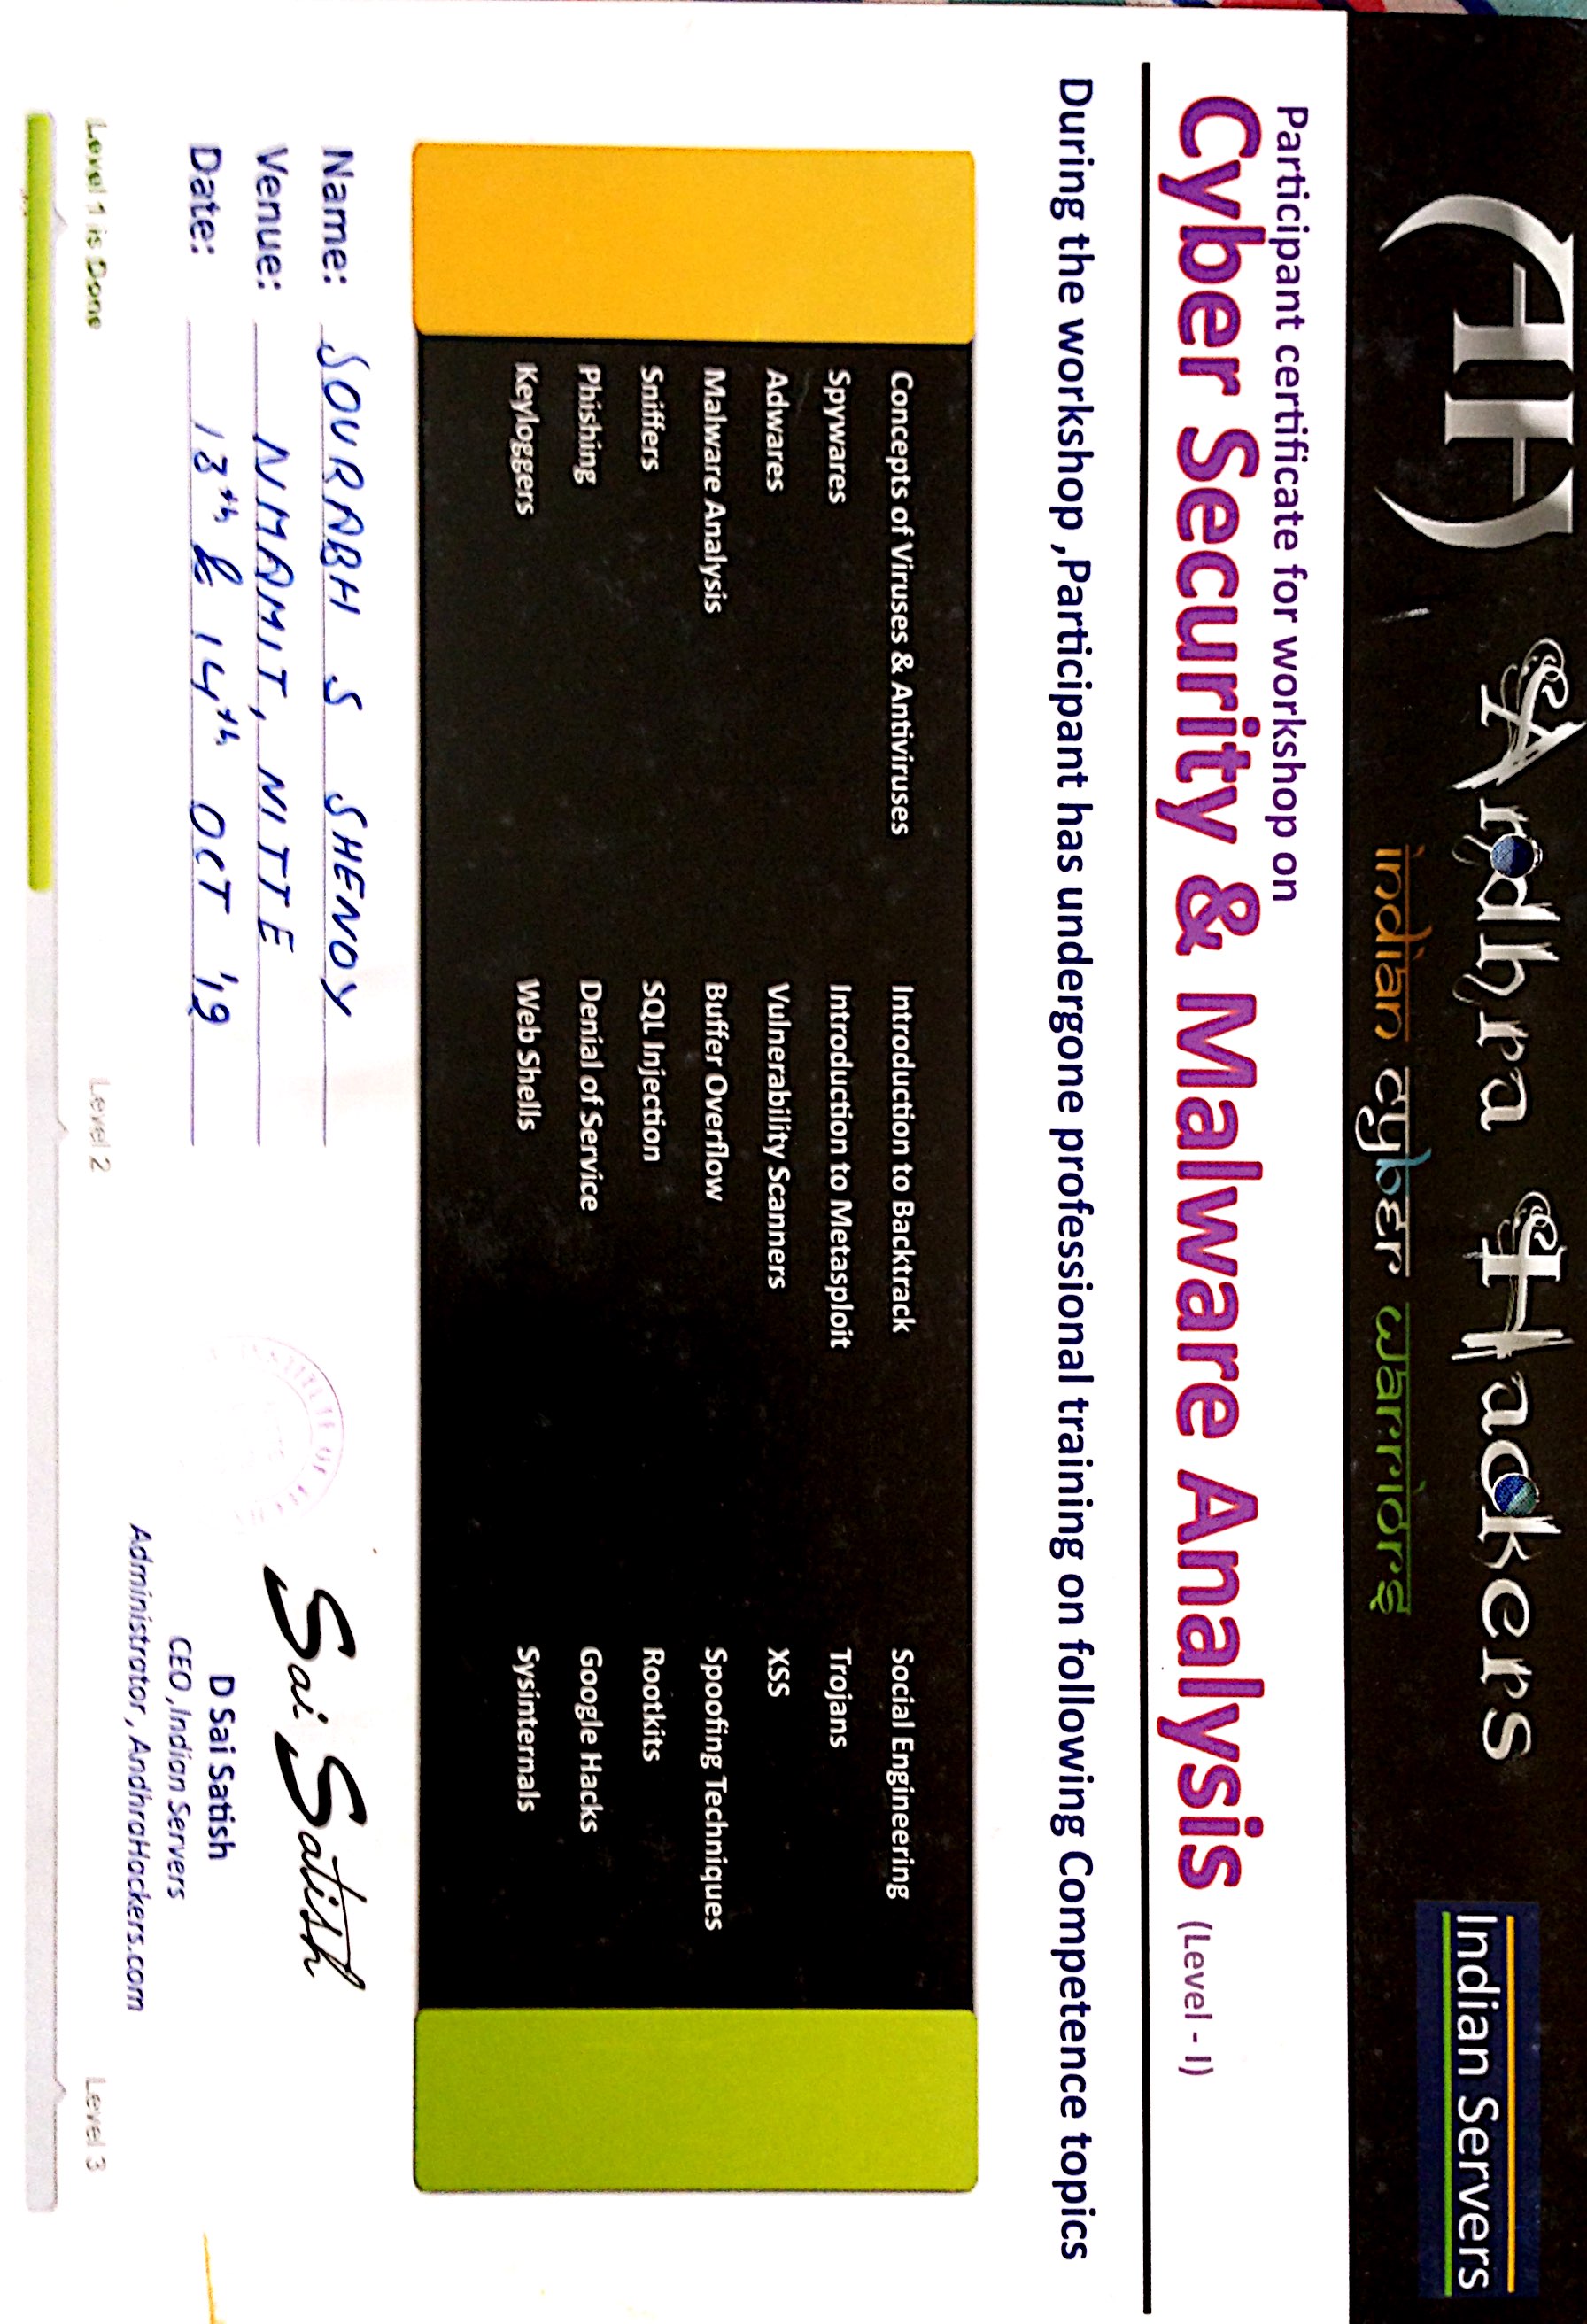 AH Andhra Hackers
Indian Servers
indian cyber warriors
Participant certificate for workshop on
Cyber Security & Malware Analysis (Level - I)
During the workshop ,Participant has undergone professional training on following Competence topics
Concepts of Viruses & Antiviruses
Spywares
Adwares
Malware Analysis
Sniffers
Phishing
Keyloggers
Introduction to Backtrack
Introduction to Metasploit
Vulnerability Scanners
Buffer Overflow
SQL Injection
Denial of Service
Web Shells
Social Engineering
Trojans
XSS
Spoofing Techniques
Rootkits
Google Hacks
Sysinternals
Name: SOURABH S SHENOY
Venue: NMAMIT, NITTE
Date: 13th & 14th OCT '12
Sai Satish
D Sai Satish
CEO ,Indian Servers
Administrator , AndhraHackers.com
Level 1 is Done
Level 2
Level 3